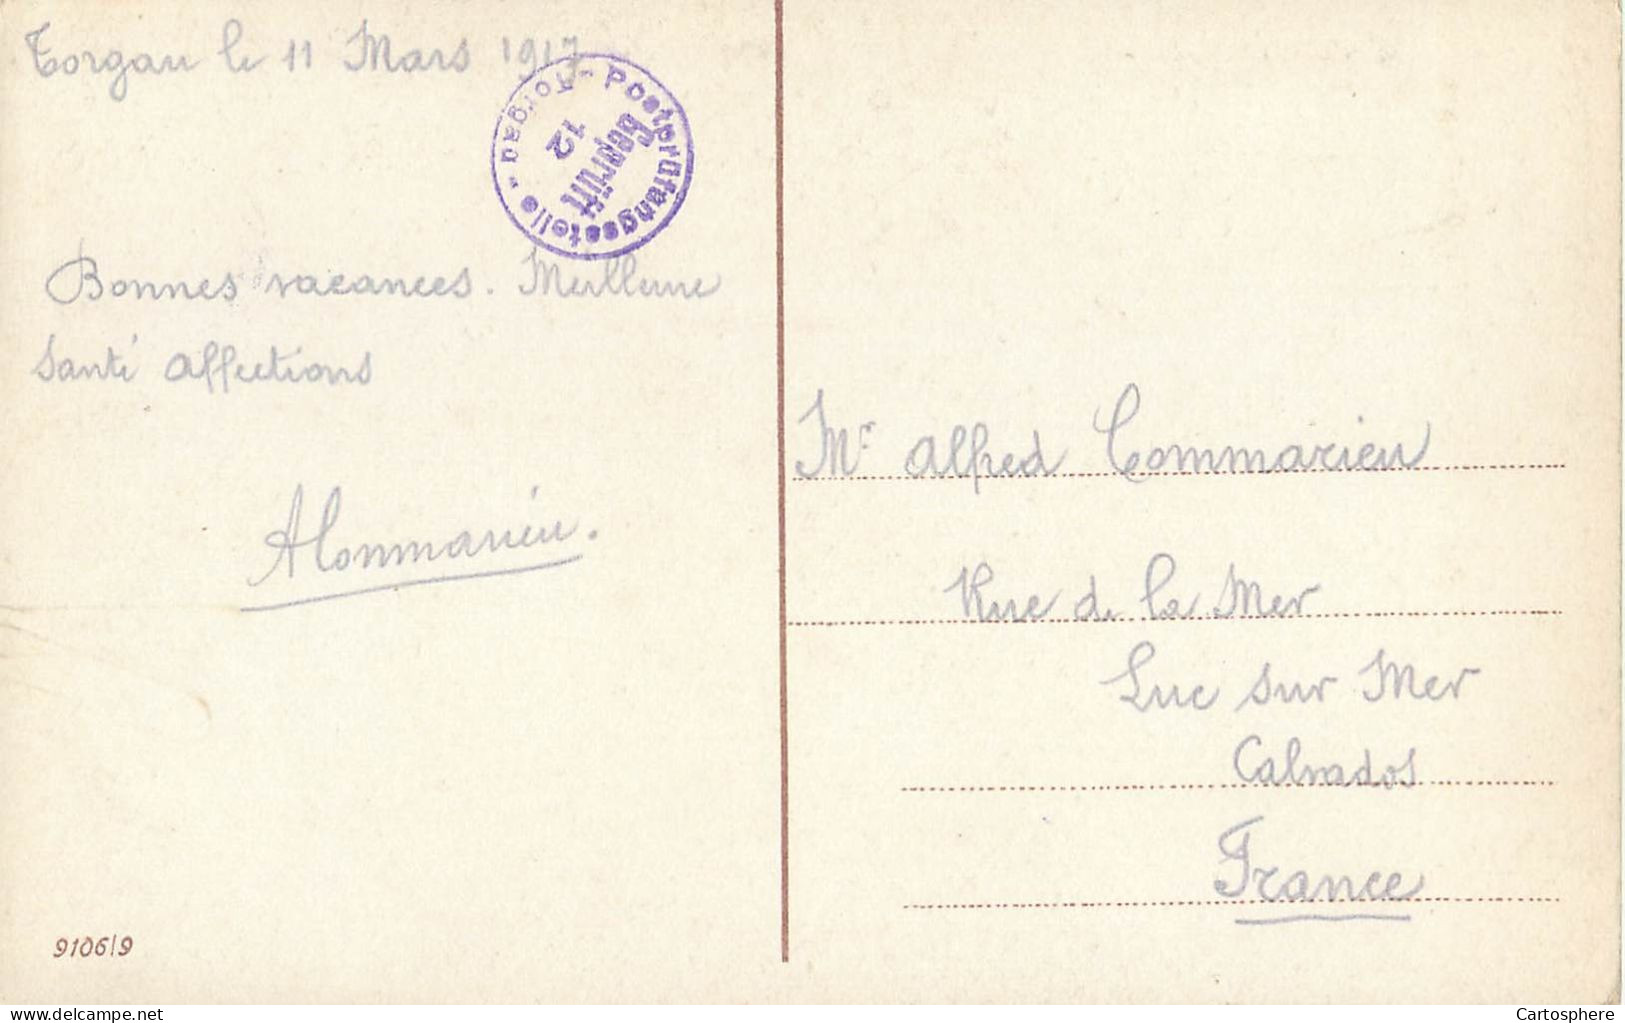 Torgau le 11 Mars 1917
Postprüfungsstelle - Torgau -
Geprüft
12
Bonnes vacances. Meilleure
Santé affections
ACommarieu.
Mr Alfred Commarieu
Rue de la Mer
Luc sur Mer
Calvados
France
9106/9
www.delcampe.net
Cartosphere